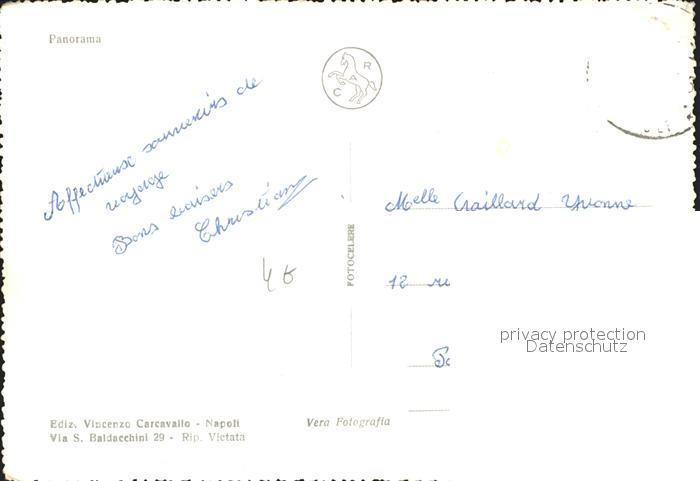 Panorama
C A R
Affectueux souvenirs de
voyage
Bons baisers
Christian
4 €
Melle Craillard Yvonne
12 ru
FOTOCELERE
privacy protection
Datenschutz
Ediz. Vincenzo Carcavallo - Napoli
Via S. Baldacchini 29 - Rip. Vietata
Vera Fotografia